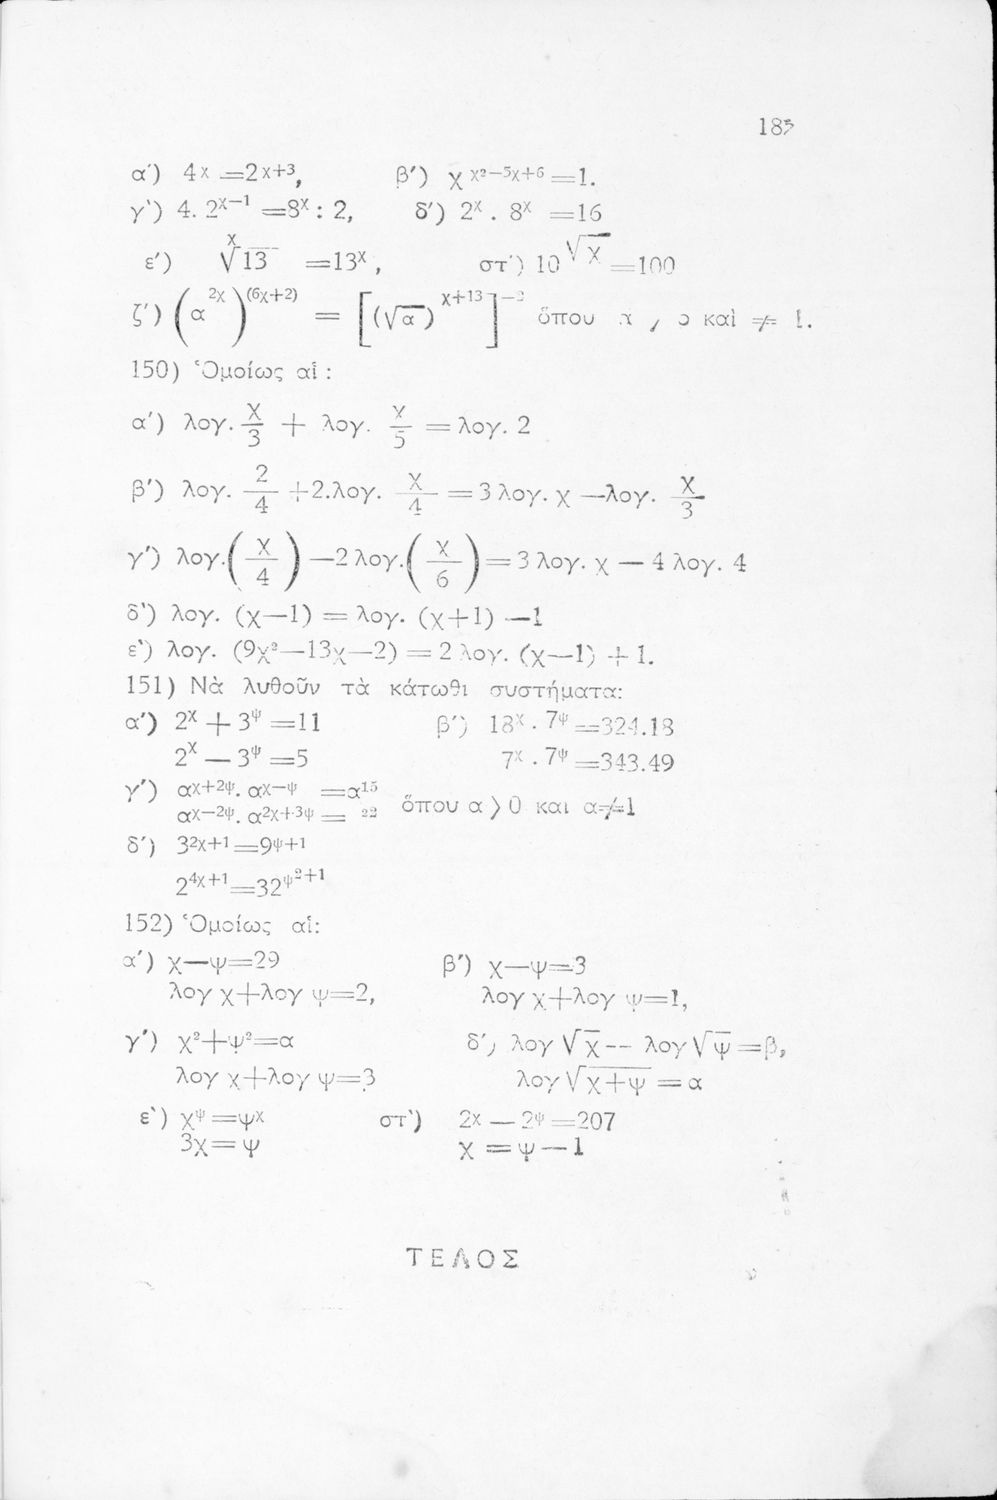 185
α') 4ˣ =2ˣ⁺³, β') χ^(χ²−5χ+6) =1.
γ') 4. 2ˣ⁻¹ =8ˣ : 2, δ') 2ˣ . 8ˣ =16
ε') ˣ√13 =13ˣ, στ') 10^√χ =100
ζ') (α^2χ)^(6χ+2) = [(√α)^χ+13]⁻² ὅπου α 〉 ο καὶ ≠ 1.
150) Ὁμοίως αἱ :
α') λογ. χ/3 + λογ. χ/5 = λογ. 2
β') λογ. 2/4 +2.λογ. χ/4 = 3 λογ. χ —λογ. χ/3
γ') λογ.(χ/4) —2 λογ.(χ/6) = 3 λογ. χ — 4 λογ. 4
δ') λογ. (χ—1) = λογ. (χ+1) —1
ε') λογ. (9χ²—13χ—2) = 2 λογ. (χ—1) + 1.
151) Νὰ λυθοῦν τὰ κάτωθι συστήματα:
α') 2^χ + 3^ψ =11 β') 18^χ . 7^ψ =324.18
2^χ — 3^ψ =5 7^χ . 7^ψ =343.49
γ') α^χ+2ψ. α^χ—ψ =α¹⁵
α^χ—2ψ. α^2χ+3ψ = ²² ὅπου α 〉 0 και α≠1
δ') 3^2χ+1 =9^ψ+1
2^4χ+1 =32^ψ²+1
152) Ὁμοίως αἱ:
α') χ—ψ=29 β') χ—ψ=3
λογ χ+λογ ψ=2, λογ χ+λογ ψ=1,
γ') χ²+ψ²=α δ') λογ √χ — λογ √ψ =β,
λογ χ+λογ ψ=3 λογ √χ+ψ = α
ε') χ^ψ =ψ^χ στ') 2^χ — 2^ψ =207
3χ= ψ χ = ψ — 1
ΤΕΛΟΣ